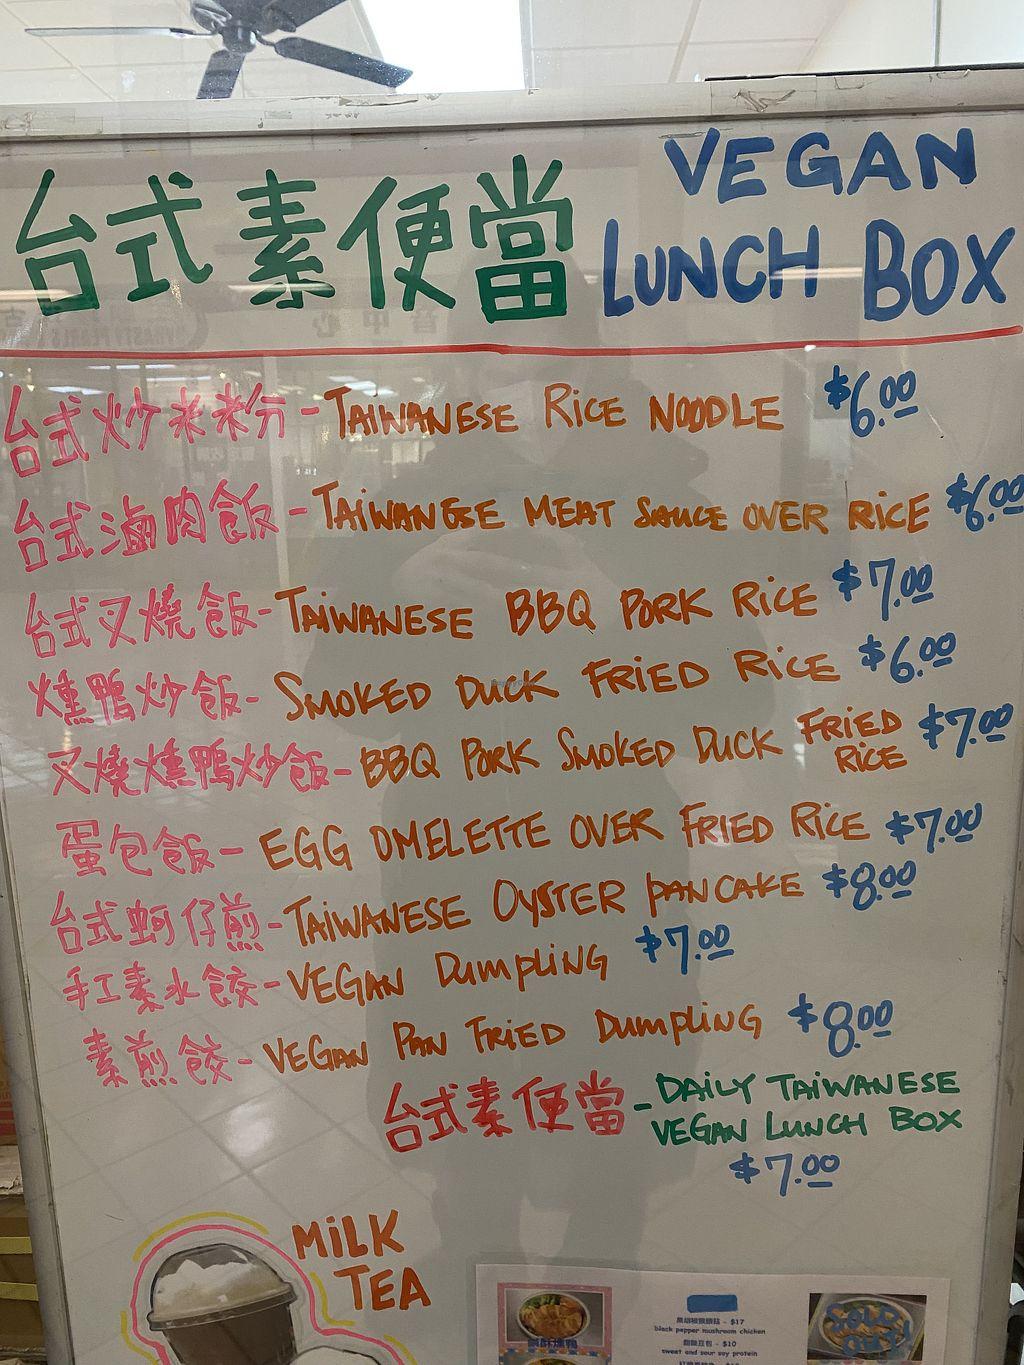 台式素便當 VEGAN
LUNCH BOX
台式炒米粉 - TAIWANESE RICE NOODLE $6.00
台式滷肉飯 - TAIWANESE MEAT SAUCE OVER RICE $6.00
台式叉燒飯 - TAIWANESE BBQ PORK RICE $7.00
燻鴨炒飯 - SMOKED DUCK FRIED RICE $6.00
叉燒燻鴨炒飯 - BBQ PORK SMOKED DUCK FRIED RICE $7.00
蛋包飯 - EGG OMELETTE OVER FRIED RICE $7.00
台式蚵仔煎 - TAIWANESE OYSTER PANCAKE $8.00
手工素水餃 - VEGAN DUMPLING $7.00
素煎餃 - VEGAN PAN FRIED DUMPLING $8.00
台式素便當 - DAILY TAIWANESE
VEGAN LUNCH BOX
$7.00
MILK
TEA
- $17
black pepper mushroom chicken
- $10
sweet and sour soy protein
SOLD
OUT!